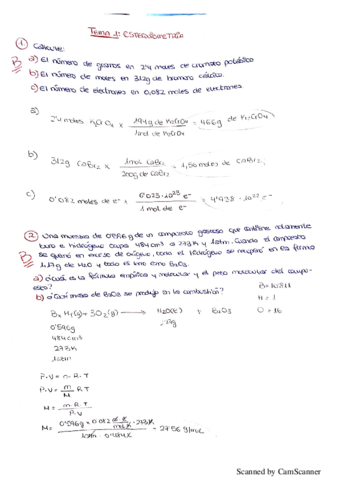 TEMA 1: ESTEQUIOMETRÍA
1 Calcule:
B a) El número de gramos en 2'4 moles de cromato potásico
b) El número de moles en 312g de bromuro cálcico
c) El número de electrones en 0,082 moles de electrones
a)
2'4 moles K2CrO4 × 194g de K2CrO4 / 1mol de K2CrO4 = 466g de K2CrO4
b)
312g CaBr2 × 1mol CaBr2 / 200g de CaBr2 = 1,56 moles de CaBr2
c) 0'082 moles de e- × 6'023·10^23 e- / 1 mol de e- = 4'938·10^22 e-
2 Una muestra de 0'596g de un compuesto gaseoso que contiene solamente
boro e hidrógeno ocupa 484cm3 a 273K y 1atm. Cuando el compuesto
B se quemó en exceso de oxígeno, todo el hidrógeno se recuperó en la forma
1,17g de H2O y todo el boro como B2O3.
a) ¿Cuál es la fórmula empírica y molecular y el peso molecular del compuesto?
b) ¿Qué masa de B2O3 se produjo en la combustión?
B = 10'811
H = 1
O = 16
BxHy(g) + 3O2(g) → H2O(l) y B2O3
0'596g
1,17g
484cm3
273K
1atm
P·V = n·R·T
P·V = m/M R·T
M = m·R·T / P·V
M = 0'596g × 0,082 · 273K / 1atm · 0,484K = 27'56 g/mol
Scanned by CamScanner